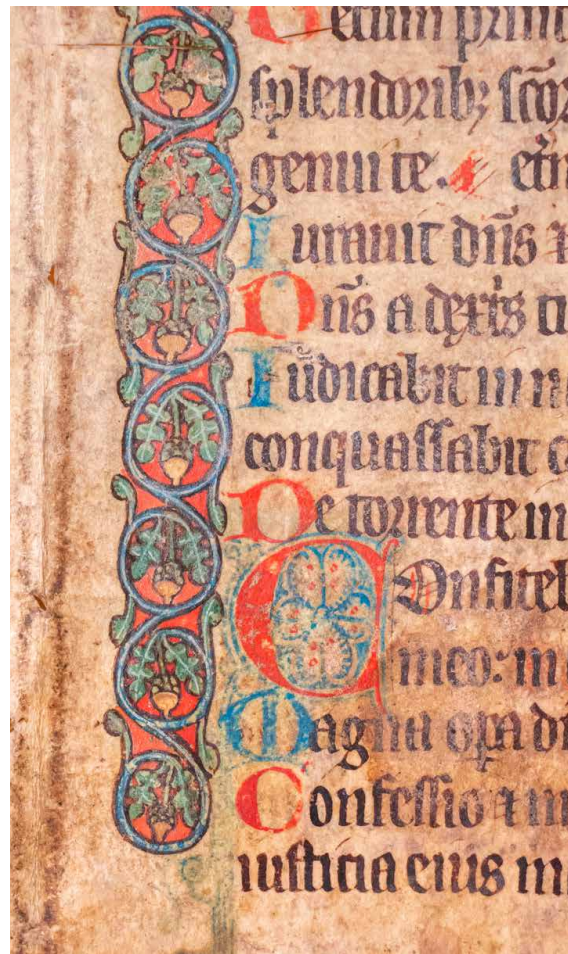 Tecum princ
splendoribꝫ sc̄or
genui te. etn
Iurauit dn̄s ⁊
Dn̄s a dext̾s tu
Iudicabit in n
conquassabit c
De torrente in
Onfiteb
meo: in
Magna oꝑa di
Confessio ⁊ m
iusticia eius m